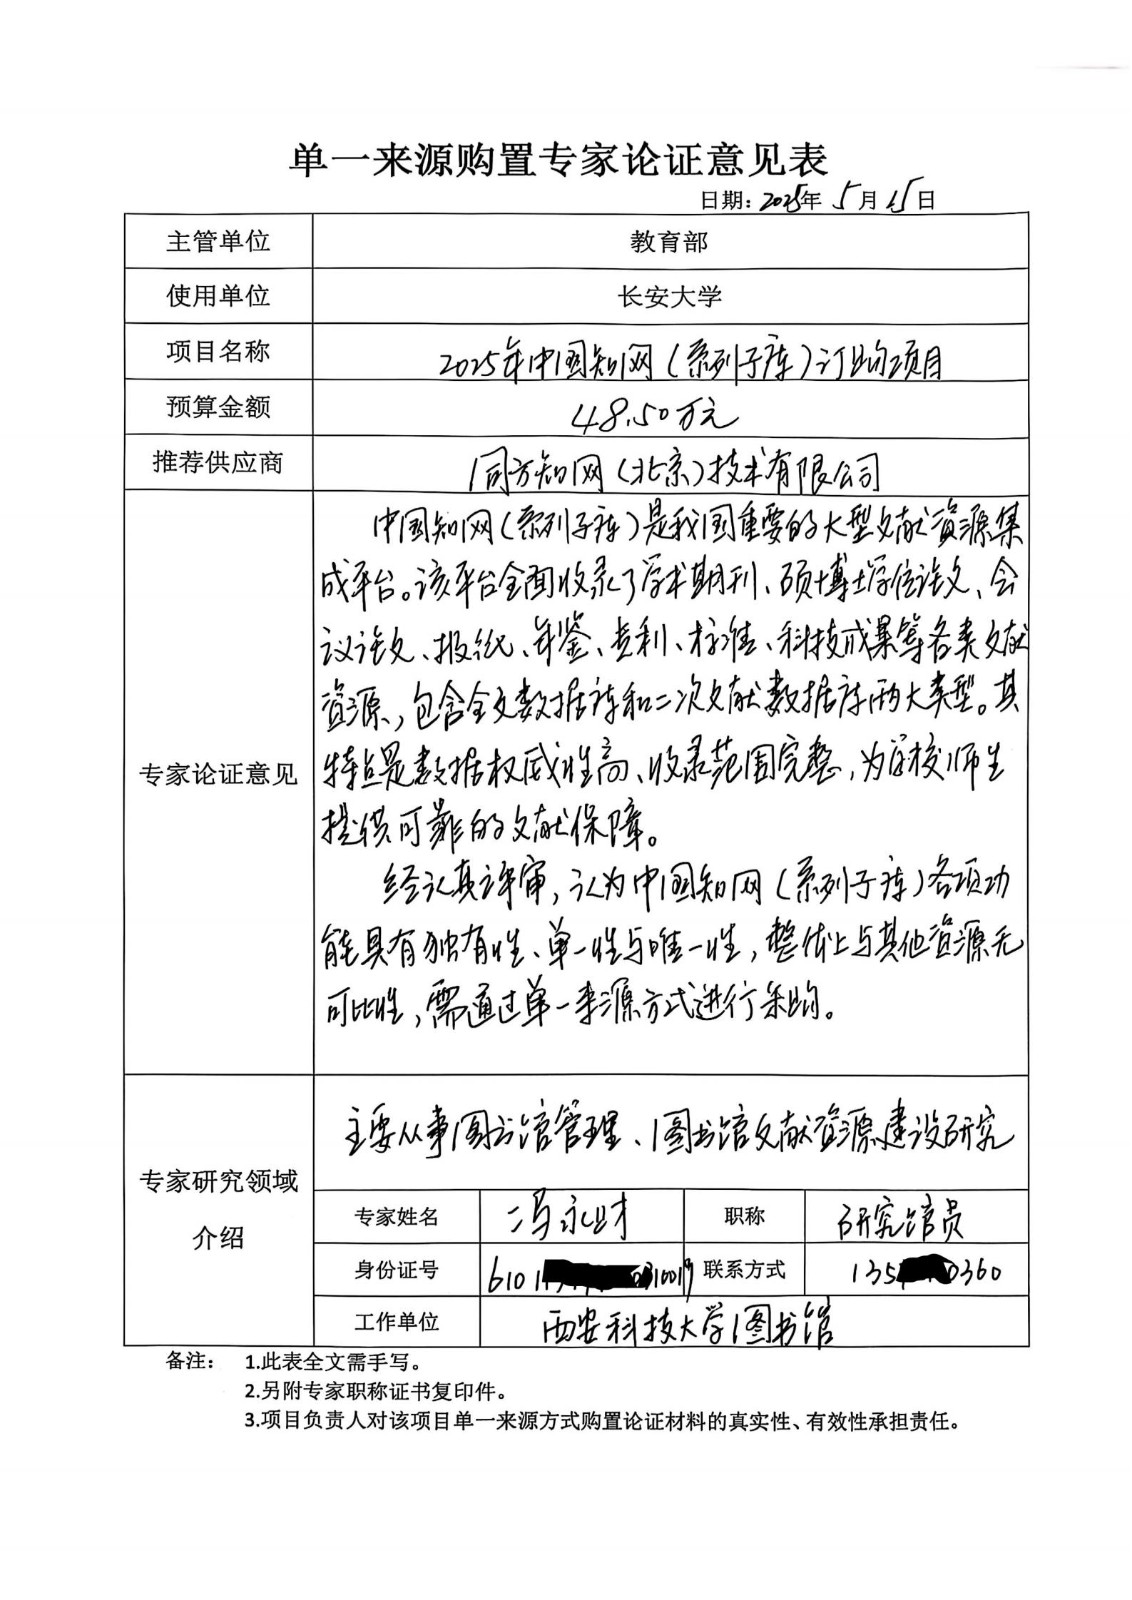 单一来源购置专家论证意见表
日期：2025年 5月15日
主管单位 教育部
使用单位 长安大学
项目名称 2025年中国知网（系列子库）订购项目
预算金额 48.50万元
推荐供应商 同方知网（北京）技术有限公司
中国知网（系列子库）是我国重要的大型文献资源集
成平台。该平台全面收录了学术期刊、硕博士学位论文、会
议论文、报纸、年鉴、专利、标准、科技成果等各类文献
资源，包含全文数据库和二次文献数据库两大类型。其
专家论证意见 特点是数据权威性高、收录范围完整，为学校师生
提供可靠的文献保障。
经认真评审，认为中国知网（系列子库）各项功
能具有独有性、单一性与唯一性，整体上与其他资源无
可比性，需通过单一来源方式进行采购。
专家研究领域
介绍
主要从事图书馆管理、图书馆文献资源建设研究
专家姓名 冯永财 职称 研究馆员
身份证号 6101 310019 联系方式 135 0360
工作单位 西安科技大学图书馆
备注： 1.此表全文需手写。
2.另附专家职称证书复印件。
3.项目负责人对该项目单一来源方式购置论证材料的真实性、有效性承担责任。